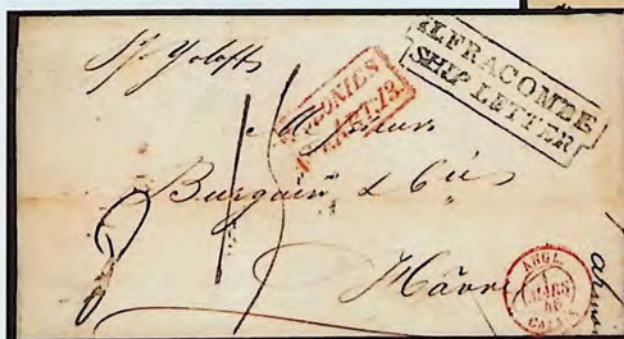 ILFRACOMBE
SHIP LETTER
COLONIES
ART. 13.
Messieurs
Burguin & Cie
Hâvre
15
ANGL.
1
MARS
46
CALAIS